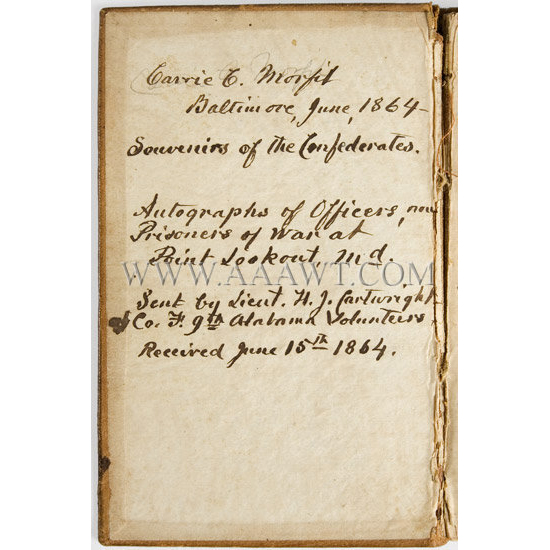 Carrie C. Morfit
Baltimore, June, 1864
Souvenirs of the Confederates.
Autographs of Officers, now
Prisoners of War at
Point Lookout, Md.
WWW.AAAWT.COM
Sent by Lieut. H. J. Cartwright
Co. F. 9th Alabama Volunteers
Received June 15th 1864.